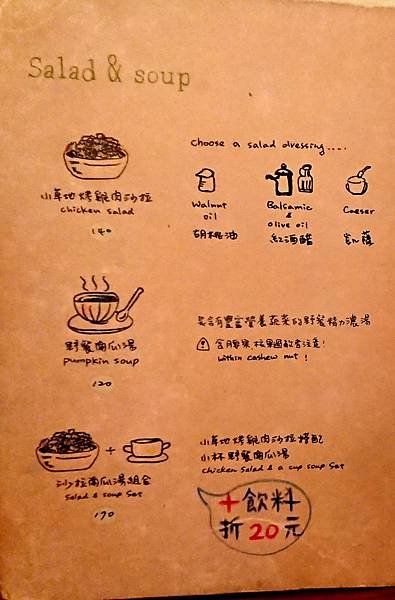 Salad & soup
choose a salad dressing....
小草地烤雞肉沙拉
chicken salad
140
Walnut
oil
胡桃油
Balsamic
&
olive oil
紅酒醋
Caeser
凱薩
野餐南瓜湯
pumpkin soup
120
富營養蔬菜的野餐精力濃湯
含腰果,核果過敏者注意!
within cashew nut!
沙拉南瓜湯組合
salad & soup set
170
小草地烤雞肉沙拉搭配
小杯野餐南瓜湯
chicken salad & a cup soup set
+飲料
折20元